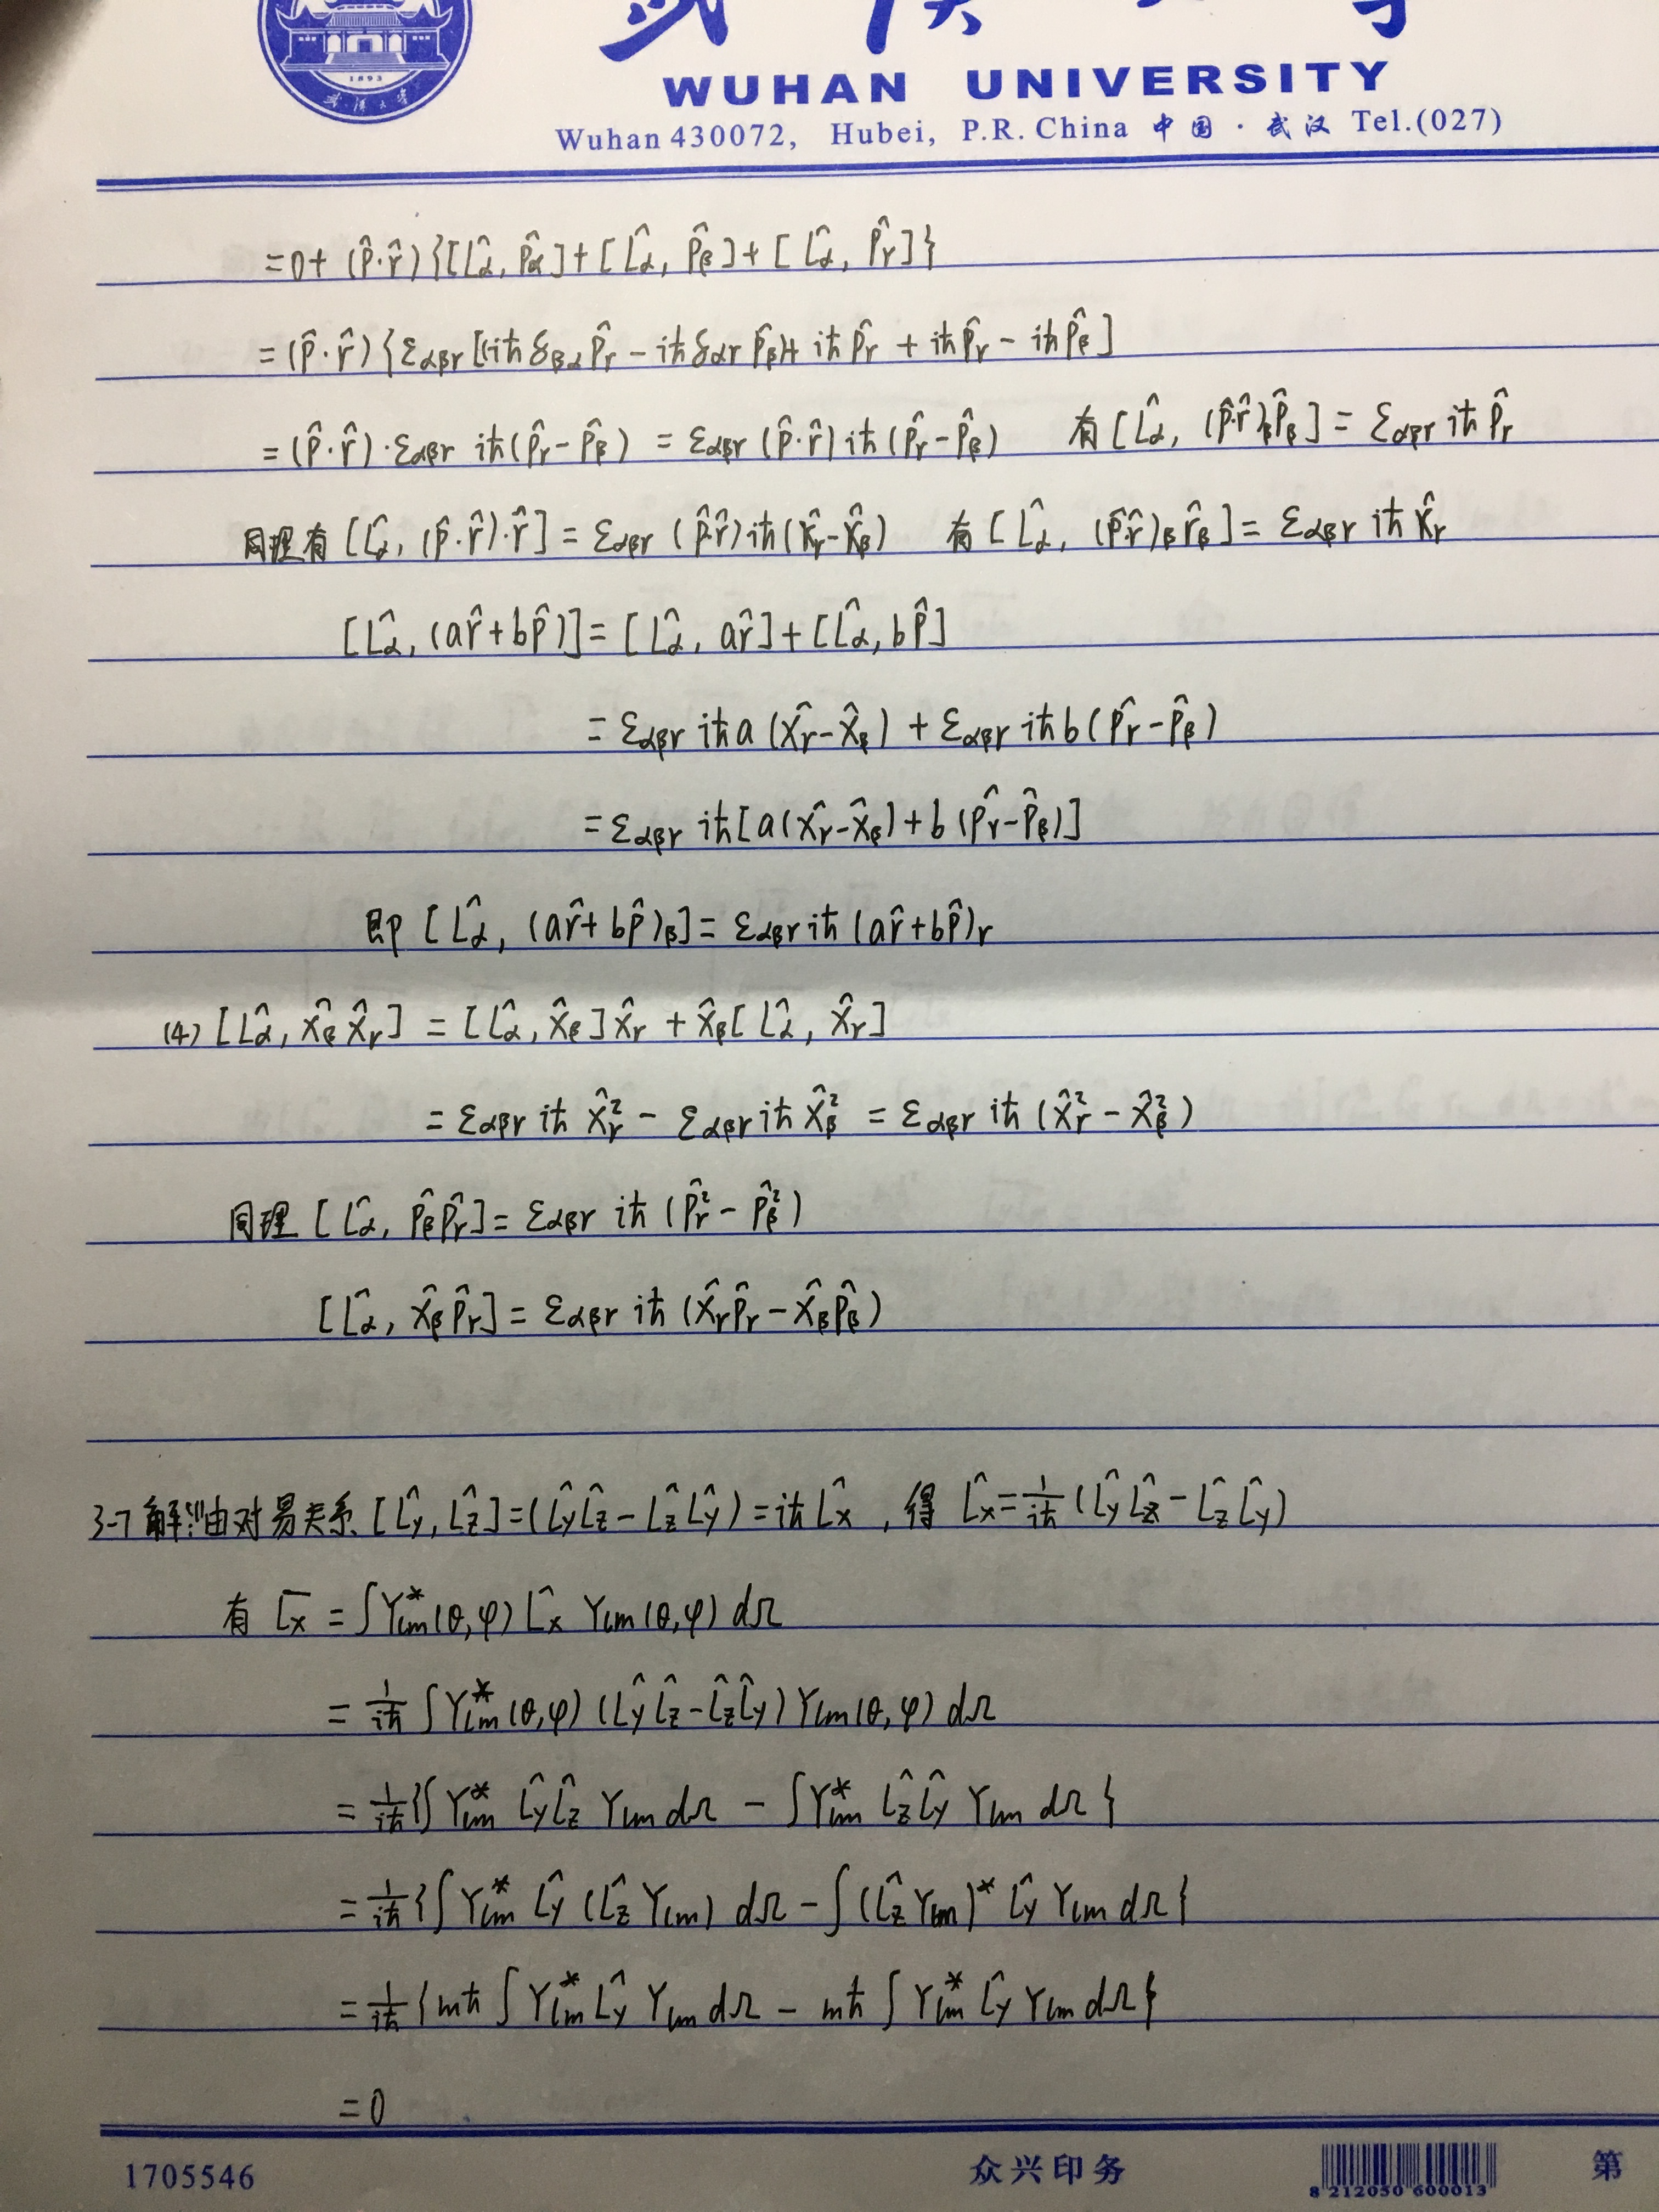 1893
WUHAN UNIVERSITY
Wuhan 430072, Hubei, P.R. China 中国·武汉 Tel.(027)
=0+ (p̂·r̂){[L̂α, p̂α]+[L̂α, p̂β]+[L̂α, p̂γ]}
=(p̂·r̂){εαβγ[(iħδβαp̂γ - iħδαγp̂β)+ iħp̂γ + iħp̂γ - iħp̂β]
=(p̂·r̂)·εαβγ iħ(p̂γ-p̂β) = εαβγ (p̂·r̂)iħ(p̂γ-p̂β) 有[L̂α, (p̂·r̂)βp̂β]= εαβγ iħ p̂γ
同理有[L̂α, (p̂·r̂)·r̂]= εαβγ (p̂·r̂)iħ(x̂γ-x̂β) 有[L̂α, (p̂·r̂)βr̂β]= εαβγ iħ x̂γ
[L̂α, (ar̂+bp̂)]=[L̂α, ar̂]+[L̂α, bp̂]
= εαβγ iħa(x̂γ-x̂β) + εαβγ iħb(p̂γ-p̂β)
=εαβγ iħ[a(x̂γ-x̂β)+b(p̂γ-p̂β)]
即[L̂α, (ar̂+bp̂)β]= εαβγiħ(ar̂+bp̂)γ
(4)[L̂α, x̂βx̂γ] =[L̂α, x̂β]x̂γ + x̂β[L̂α, x̂γ]
= εαβγ iħ x̂γ² - εαβγiħ x̂β² = εαβγ iħ(x̂γ² - x̂β²)
同理[L̂α, p̂βp̂γ]= εαβγ iħ(p̂γ² - p̂β²)
[L̂α, x̂βp̂γ]= εαβγ iħ(x̂γp̂γ-x̂βp̂β)
3-7解:(1)由对易关系[L̂y, L̂z]=(L̂yL̂z-L̂zL̂y)=iħL̂x ,得 L̂x=1/iħ(L̂yL̂z-L̂zL̂y)
有 L̄x = ∫Y*lm(θ,φ) L̂x Ylm(θ,φ) dΩ
= 1/iħ ∫Y*lm(θ,φ)(L̂yL̂z-L̂zL̂y)Ylm(θ,φ) dΩ
= 1/iħ{∫Y*lm L̂yL̂z Ylm dΩ - ∫Y*lm L̂zL̂y Ylm dΩ}
= 1/iħ{∫Y*lm L̂y(L̂zYlm) dΩ - ∫(L̂zYlm)* L̂y Ylm dΩ}
= 1/iħ{mħ∫Y*lm L̂y Ylm dΩ - mħ∫Y*lm L̂y Ylm dΩ}
=0
1705546 众兴印务 8 212050 600013 第